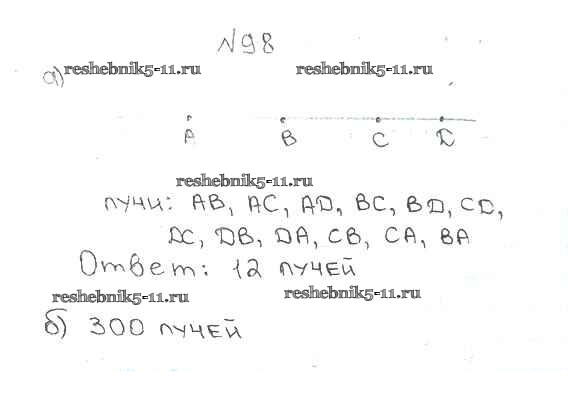 №98
а) reshebnik5-11.ru reshebnik5-11.ru
A B C D
reshebnik5-11.ru
лучи: AB, AC, AD, BC, BD, CD,
DC, DB, DA, CB, CA, BA
Ответ: 12 лучей
reshebnik5-11.ru reshebnik5-11.ru
б) 300 лучей